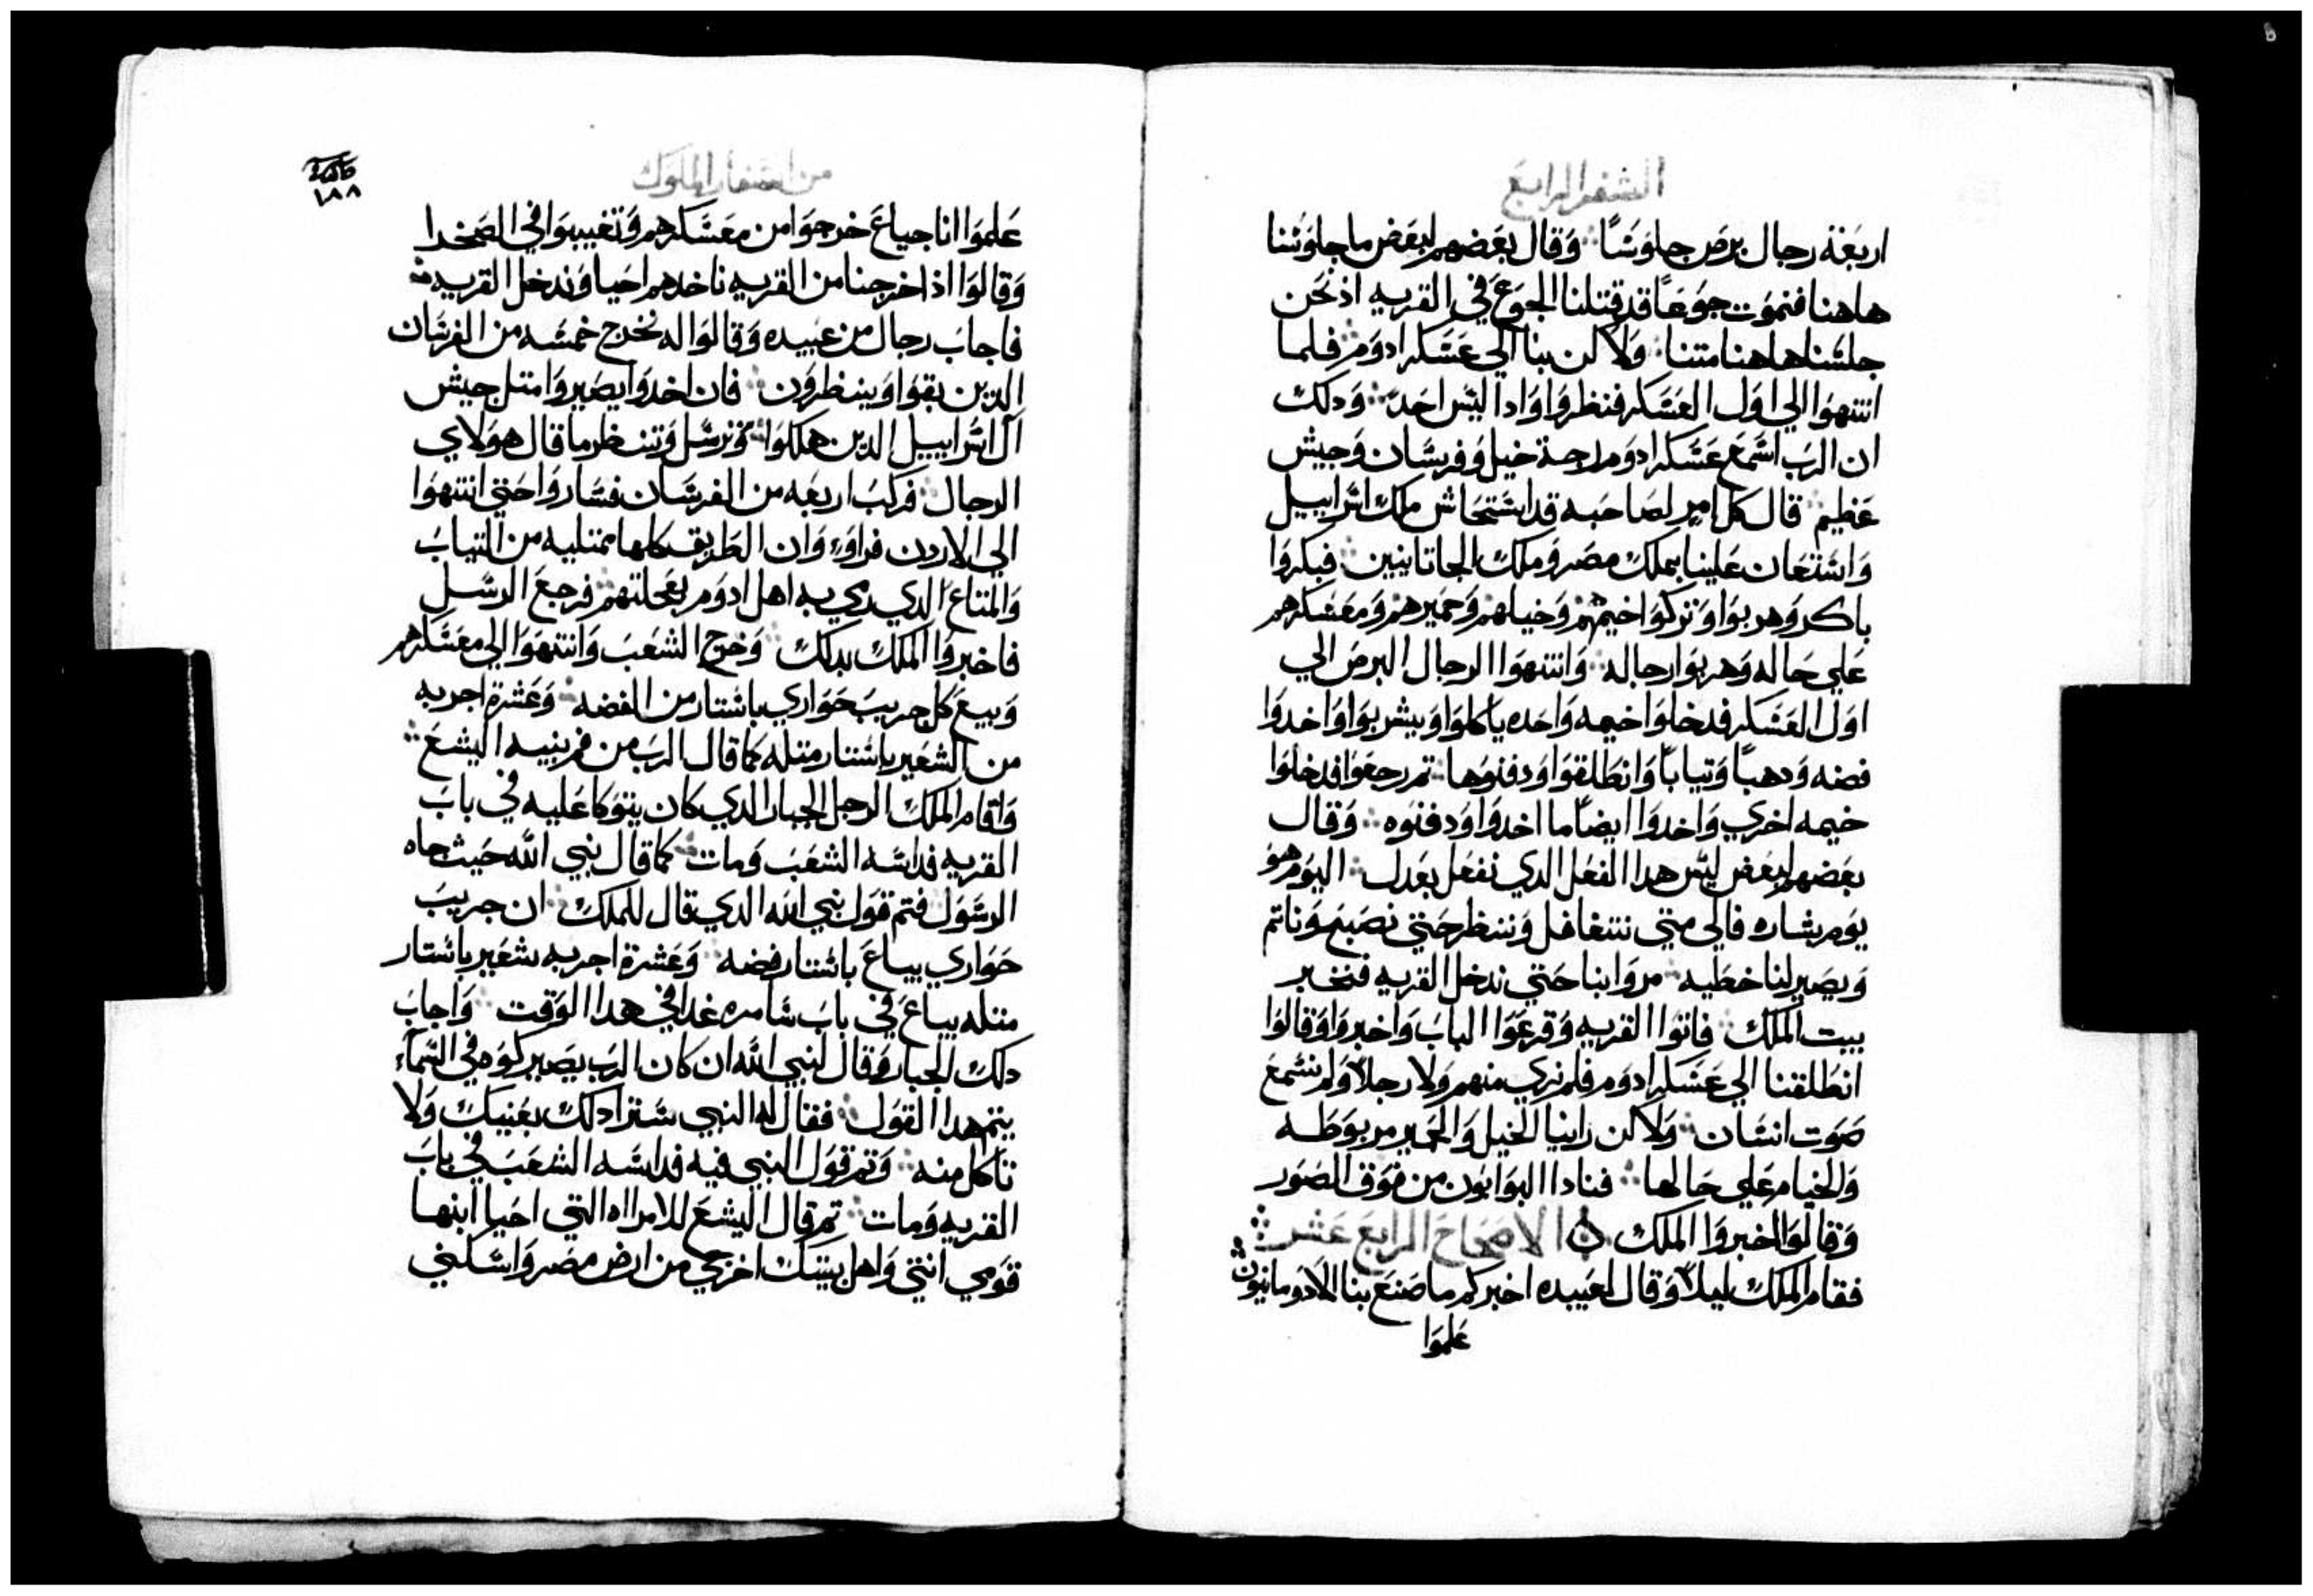 السفر الرابع
اربعة رجال برص جلوسًا وقال بعضهم لبعض ما جلوسنا
هاهنا فنموت جوعًا قد قتلنا الجوع في القريه اذ نحن
جلسنا هاهنا متنا ولاكن بنا الي عسكر ادوم فلما
انتهوا الي اول العسكر فنظروا واذا ليس احد ودلك
ان الرب اسمع عسكر ادوم خيل وفرسان وجيش
عظيم قال كل امر لصاحبه قد استجاش ملك اسراييل
واستعان علينا بملك مصر وملك الجاتانيين فبكروا
باكر وهربوا وتركوا اخيمهم وخيلهم وحميرهم ومعسكرهم
علي حاله وهربوا رجاله وانتهوا الرجال البرص الي
اول العسكر فدخلوا خيمه واحده ياكلوا ويشربوا واخدوا
فضه ودهبًا وتيابًا وانطلقوا ودفنوها تم رجعوا فدخلوا
خيمه اخري واخدوا ايضًا ما اخدوا ودفنوه وقال
بعضهم لبعض ليس هدا الفعل الدي نفعل بعدل اليوم هو
يوم بشاره فالي متي نتغافل وننظر حتي نصبح وناتم
ويصير لنا خطيه مروا بنا حتي ندخل القريه فنخبر
بيت الملك فاتوا القريه وقرعوا الباب واخبروا وقالوا
انطلقنا الي عسكر ادوم فلم نري منهم ولا رجلاً ولم نسمع
صوت انسان ولاكن راينا الخيل والحمير مربوطه
والخيام علي حالها فنادا البوابون من فوق الصور
وقالوا اخبروا الملك الاصحاح الرابع عشر
فقام الملك ليلاً وقال لعبيده اخبركم ما صنع بنا الادومانيون
علموا
من اسفار الملوك
١٨٨
علموا انا جياع خرجوا من معسكرهم وتغيبوا في الصحدا
وقالوا اذ اخرجنا من القريه ناخدهم احيا وندخل القريه
فاجاب رجال من عبيده وقالوا له نخرج خمسه من الفرسان
الدين بقوا وينظرون فان اخدوا يصيروا متل جيش
ال اسراييل الدين هلكوا نرسل وتنظر ما قال هولاي
الرجال فركب اربعه من الفرسان فساروا حتي انتهوا
الي الاردن فراوا وان الطريق كلها ممتليه من التياب
والمتاع الدي رمي به اهل ادوم بعجلتهم فرجع الرسل
فاخبروا الملك بدلك وخرج الشعب وانتهوا الي معسكرهم
وبيع كل جريب حواري باستار من الفضه وعشرة اجربه
من الشعير باستار متله كما قال الرب من فم نبيه اليشع
واقام الملك الرجل الجبار الدي كان يتوكا عليه في باب
القريه فداسه الشعب ومات كما قال نبي الله حيث جاه
الرسول فتم قول نبي الله الدي قال للملك ان جريب
حواري يباع باستار فضه وعشرة اجربه شعير باستار
متله يباع في باب سامره غدا في هدا الوقت واجاب
دلك الجبار وقال لنبي الله ان كان الرب يصير كوه في السماء
يتم هدا القول فقال له النبي سترا دلك بعنيك ولا
تاكل منه وتم قول النبي فيه فداسه الشعب في باب
القريه ومات تم قال اليشع للامراه التي احيا ابنها
قومي انتي واهل بيتك اخرجي من ارض مصر واسكني